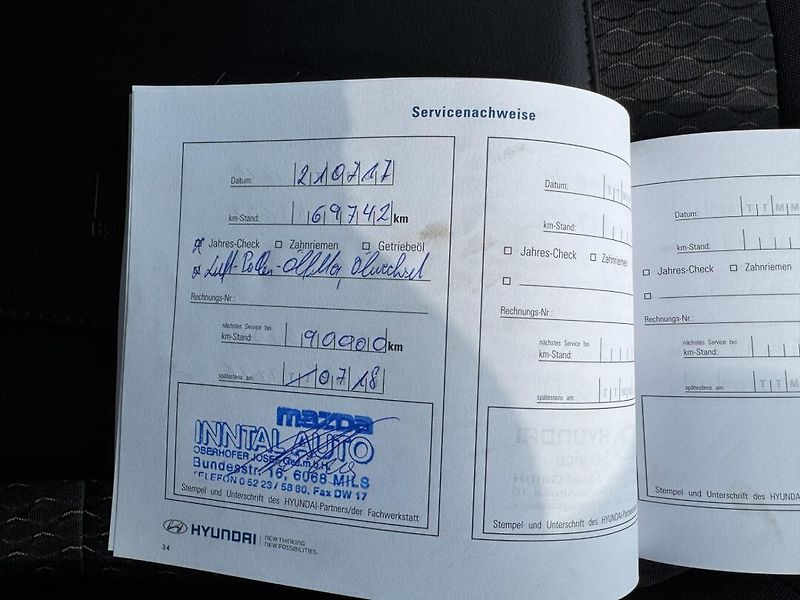 Servicenachweise
Datum: 210717
km-Stand: 69742 km
Jahres-Check Zahnriemen Getriebeöl
Luft-Pollen-Ölfilter, Ölwechsel
Rechnungs-Nr.:
nächstes Service bei
km-Stand: 90000 km
spätestens am: 0718
mazda
INNTAL AUTO
OBERHOFER JOSEF Ges.m.b.H.
Bundesstr. 16, 6068 MILS
TELEFON 0 52 23 / 58 80, Fax DW 17
Stempel und Unterschrift des HYUNDAI-Partners/der Fachwerkstatt
HYUNDAI NEW THINKING.
NEW POSSIBILITIES.
34
Datum: T T M
km-Stand:
Jahres-Check Zahnriemen
Rechnungs-Nr.:
nächstes Service bei
km-Stand:
spätestens am: T T M
Stempel und Unterschrift des HYUNDAI-Partners
Datum: T T M M
km-Stand:
Jahres-Check Zahnriemen
Rechnungs-Nr.:
nächstes Service bei
km-Stand:
spätestens am: T T M
Stempel und Unterschrift des HYUNDAI